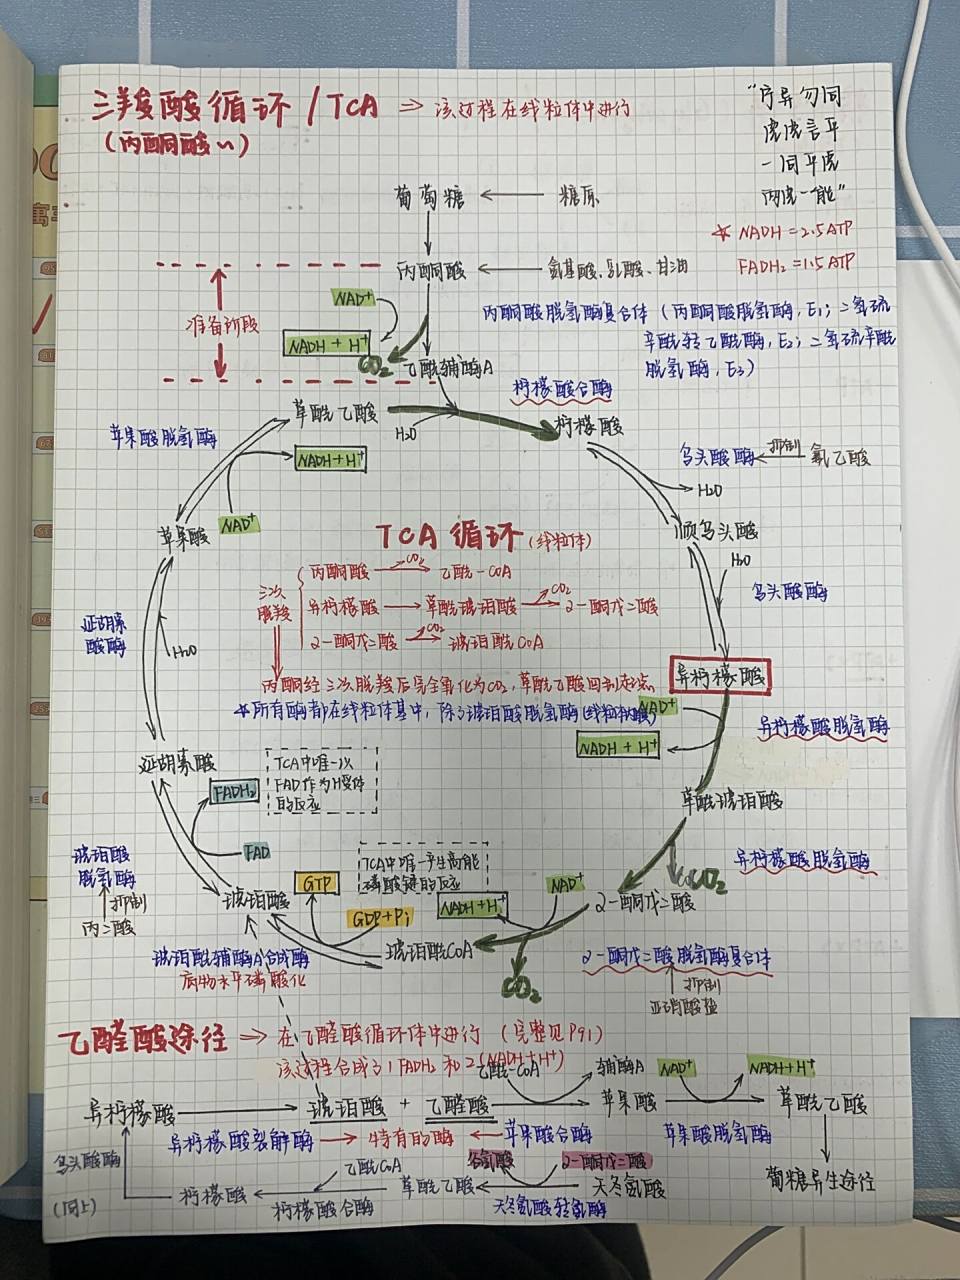 三羧酸循环/TCA ⇒ 该过程在线粒体中进行
(丙酮酸~)
"疗异勿同
虎虎言平
一同平虎
两虎一能"
☆ NADH = 2.5ATP
FADH₂ = 1.5ATP
葡萄糖 ← 糖原
丙酮酸 ← 氨基酸、乳酸、甘油
准备阶段
NAD⁺
NADH + H⁺
CO₂
乙酰辅酶A
丙酮酸脱氢酶复合体(丙酮酸脱氢酶,E₁;二氢硫
辛酰转乙酰酶,E₂;二氢硫辛酰
脱氢酶,E₃)
草酰乙酸
H₂O
柠檬酸合酶
柠檬酸
乌头酸酶 ← 抑制 氟乙酸
H₂O
顺乌头酸
H₂O
乌头酸酶
异柠檬酸
NAD⁺
NADH + H⁺
异柠檬酸脱氢酶
草酰琥珀酸
CO₂
异柠檬酸脱氢酶
2-酮戊二酸
NAD⁺
NADH+H⁺
CO₂
2-酮戊二酸脱氢酶复合体
抑制
亚砷酸盐
琥珀酰CoA
GDP+Pi
GTP
TCA中唯一产生高能
磷酸键的反应
琥珀酰辅酶A合成酶
底物水平磷酸化
琥珀酸
FAD
FADH₂
TCA中唯一以
FAD作为H受体
的反应
琥珀酸
脱氢酶
抑制
丙二酸
延胡索酸
H₂O
延胡索
酸酶
苹果酸
NAD⁺
NADH+H⁺
苹果酸脱氢酶
TCA循环(线粒体)
三次
脱羧
丙酮酸 CO₂ 乙酰-COA
异柠檬酸 → 草酰琥珀酸 CO₂ 2-酮戊二酸
2-酮戊二酸 CO₂ 琥珀酰COA
丙酮经三次脱羧后完全氧化为CO₂,草酰乙酸回到起点。
☆所有酶都在线粒体基中,除了琥珀酸脱氢酶(线粒体内膜)
乙醛酸途径 ⇒ 在乙醛酸循环体中进行 (完整见P91)
该过程合成了1FADH₂ 和 2(NADH+H⁺)
乙酰-CoA 辅酶A NAD⁺ NADH+H⁺
异柠檬酸 → 琥珀酸 + 乙醛酸 → 苹果酸 → 草酰乙酸
异柠檬酸裂解酶 → 特有的酶 ← 苹果酸合酶 苹果酸脱氢酶
乌头酸酶
(同上)
乙酰CoA 谷氨酸 2-酮戊二酸
柠檬酸 ← 草酰乙酸 ← 天冬氨酸
柠檬酸合酶 天冬氨酸转氨酶
葡糖异生途径